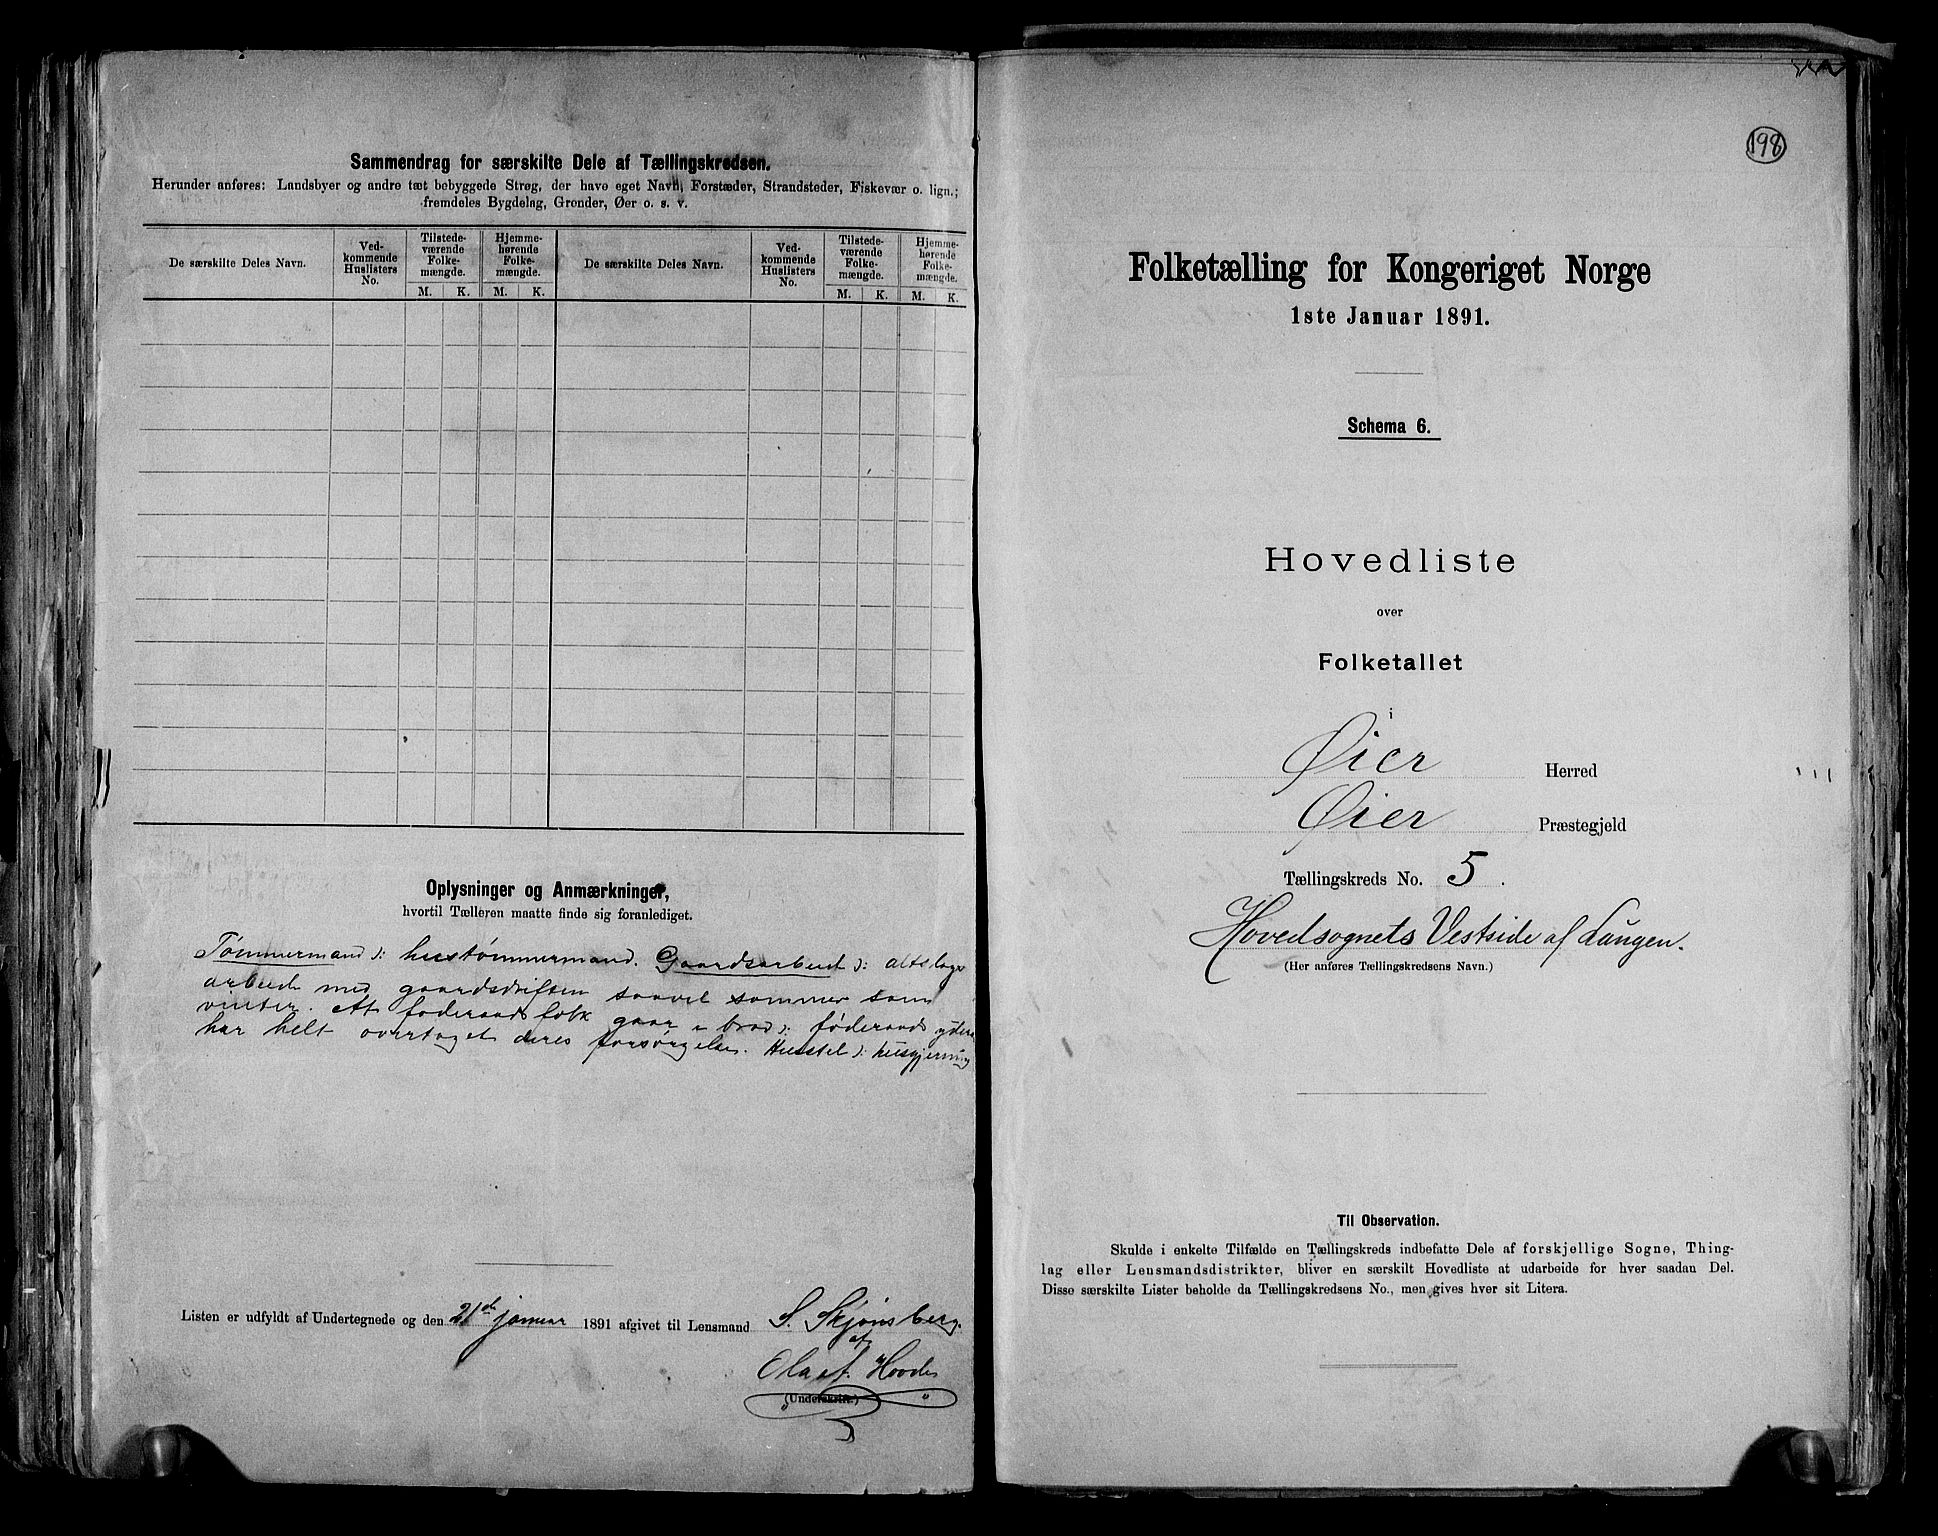 Sammendrag for særskilte Dele af Tællingskredsen.
Herunder anføres: Landsbyer og andre tæt bebyggede Strøg, der have eget Navn, Forstæder, Strandsteder, Fiskevær o. lign.;
fremdeles Bygdelag, Grender, Øer o. s. v.
De særskilte Deles Navn.
Ved-
kommende
Huslisters
No.
Tilstede-
værende
Folke-
mængde.
M. K.
Hjemme-
hørende
Folke-
mængde.
M. K.
De særskilte Deles Navn.
Ved-
kommende
Huslisters
No.
Tilstede-
værende
Folke-
mængde.
M. K.
Hjemme-
hørende
Folke-
mængde.
M. K.
Oplysninger og Anmærkninger,
hvortil Tælleren maatte finde sig foranlediget.
Tømmermand ɔ: hustømmermand. Gaardsarbeid ɔ: altslags
arbeide med gaardsdriften saavel sommer som
vinter. At føderaadsfolk gaar i brød ɔ: føderaads
har helt overtaget deres forsørgelse. Husstel ɔ: husgjerning
Listen er udfyldt af Undertegnede og den 21de januar 1891 afgivet til Lensmand S. Skjønsberg.
af
(Underskrift.)
198
Folketælling for Kongeriget Norge
1ste Januar 1891.
Schema 6.
Hovedliste
over
Folketallet
i
Øier Herred
Øier Præstegjeld
Tællingskreds No. 5.
Hovedsognets Vestside af Laugen.
(Her anføres Tællingskredsens Navn.)
Til Observation.
Skulde i enkelte Tilfælde en Tællingskreds indbefatte Dele af forskjellige Sogne, Thing-
lag eller Lensmandsdistrikter, bliver en særskilt Hovedliste at udarbeide for hver saadan Del.
Disse særskilte Lister beholde da Tællingskredsens No., men gives hver sit Litera.